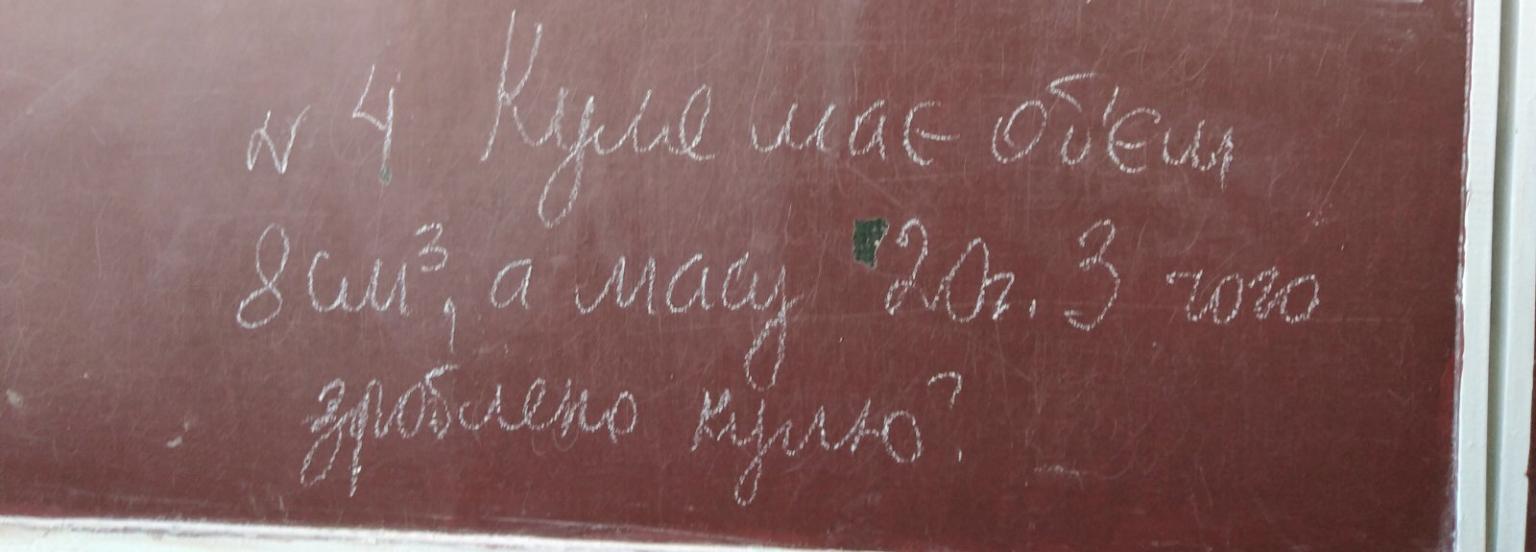 №4 Куля має об'єм
8см³, а масу 20г. З чого
зроблено кулю?